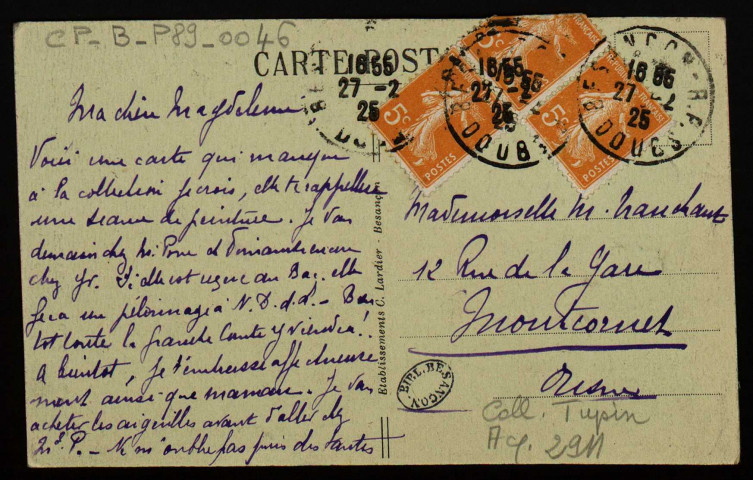 CP-B-P89-0046
CARTE POSTALE
16 55
27 - 2
25
BESANÇON R.P.
DOUBS
5c
POSTES
Ma chère Magdeleine
Voici une carte qui manque
à ta collection je crois, elle te rappellera
une séance de peinture. Je vais
demain chez Mme P. et dimanche
chez Yv. Si elle est reçue au Bac, elle
fera un pélerinage à N.D.d.
tôt toute la Franche Comté y viendra!
A bientôt, je t'embrasse affectueuse
ment ainsi que maman. Je vais
acheter les aiguilles avant d'aller chez
Mme P. - Ne m'oublie pas près des tantes
Etablissements C. Lardier - Besançon
Mademoiselle M.
12 Rue de la Gare
Montcornet
Aisne
BIBL. BESANÇON
Coll. Tupin
Acq. 2911